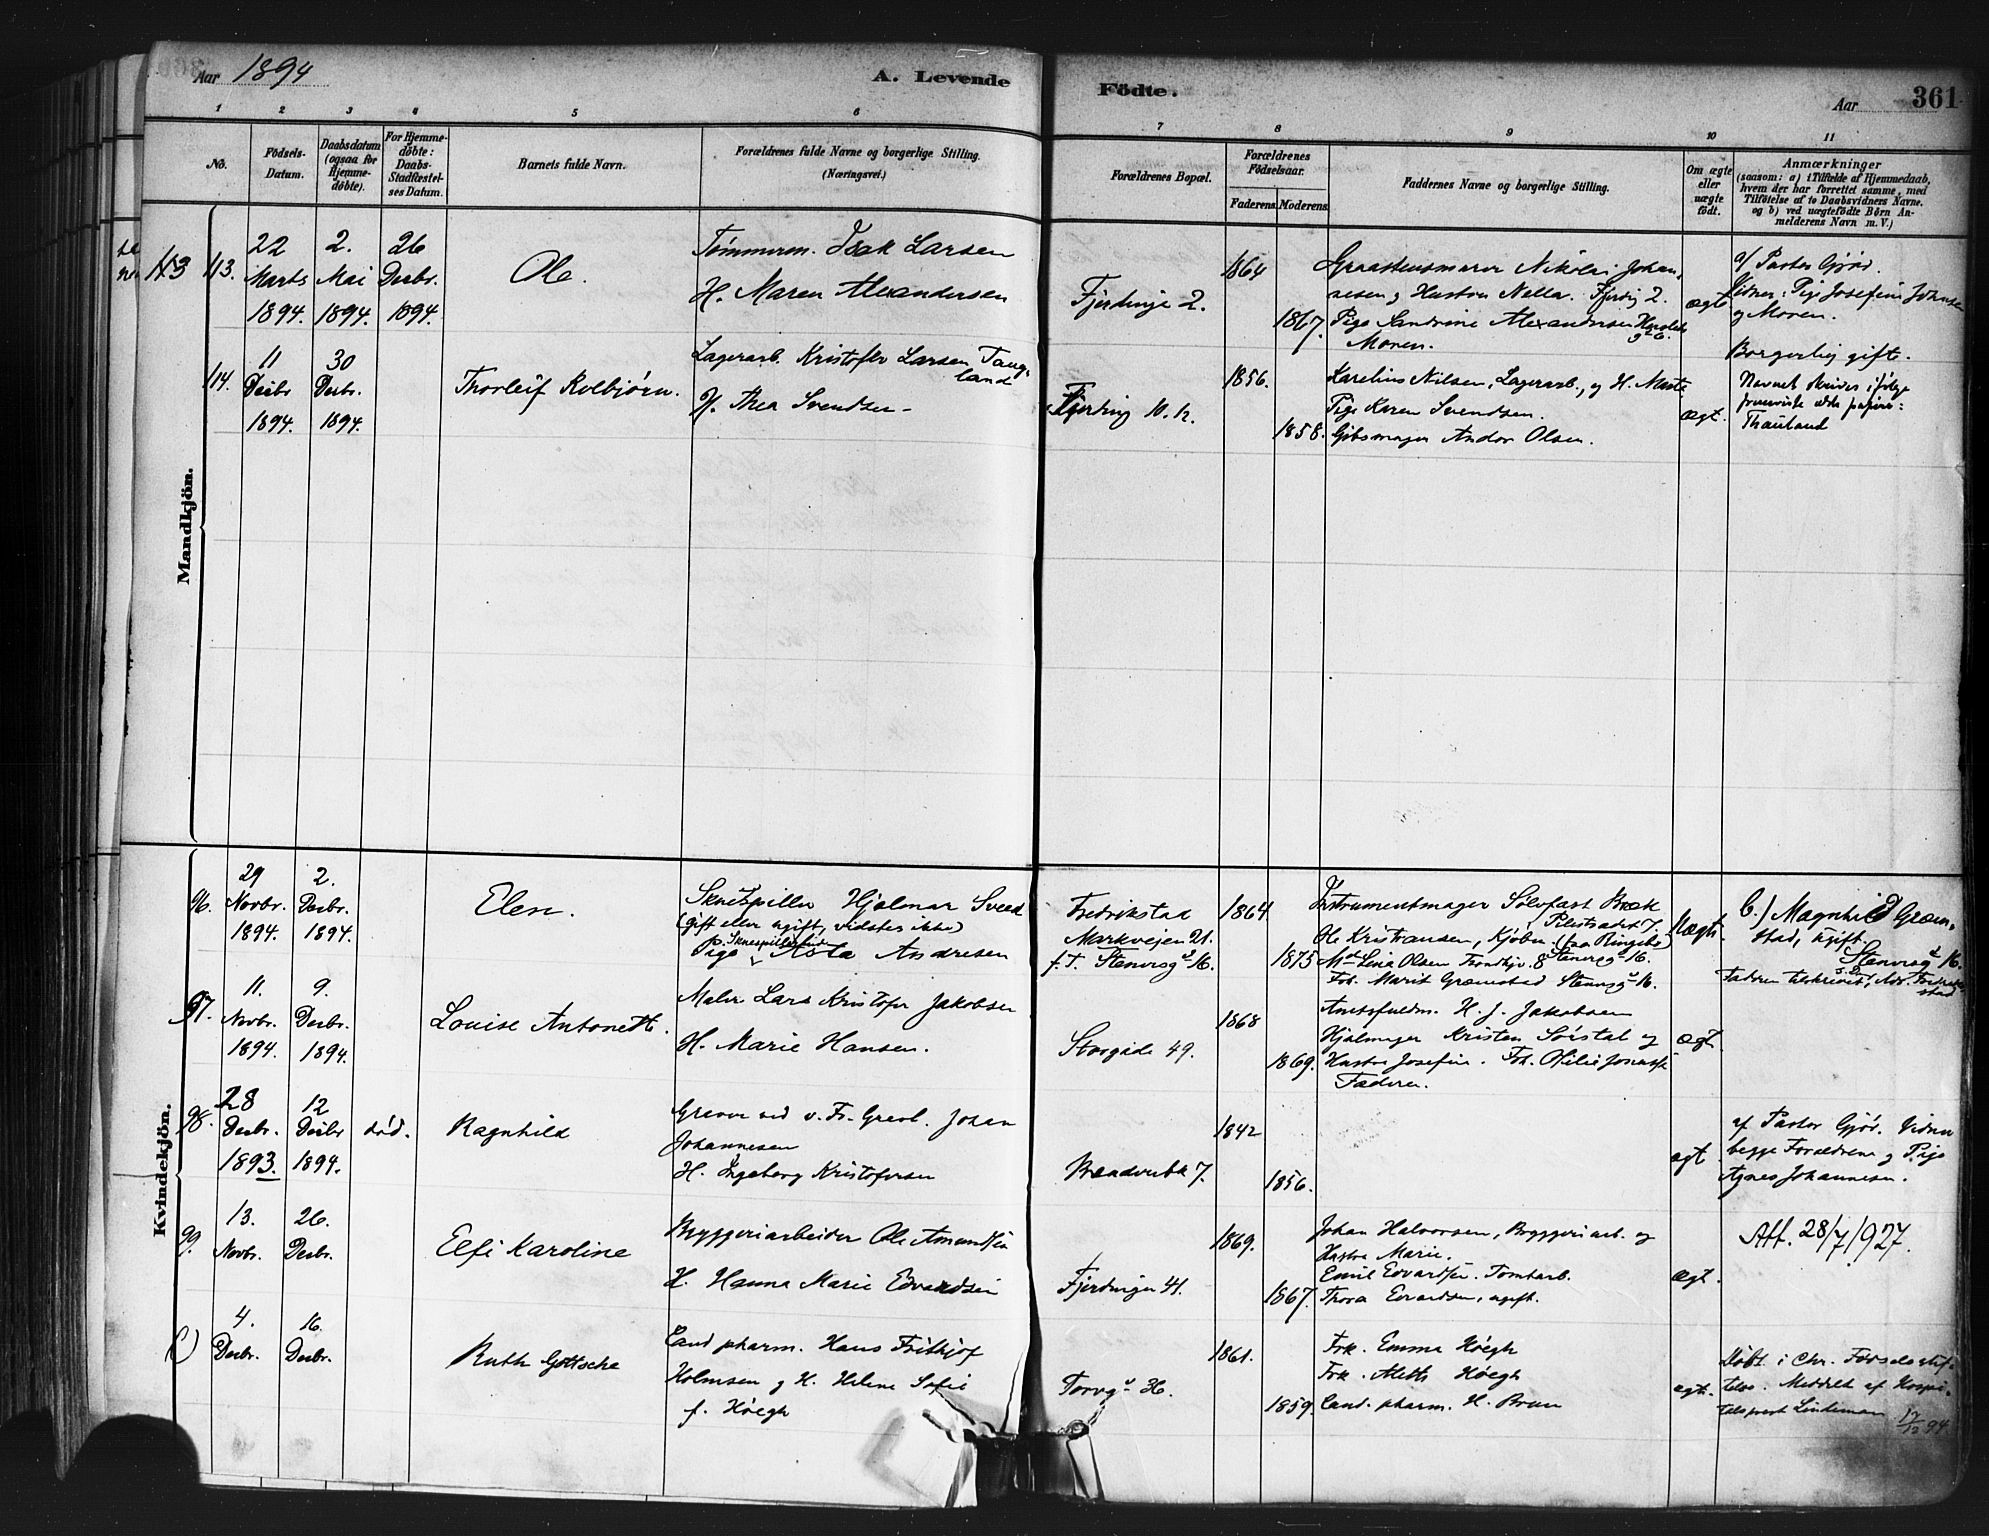 Aar 1894
A. Levende
Födte.
Aar 361
1 2 3 4 5 6 7 8 9 10 11
No.
Födsels-
Datum.
Daabsdatum
(ogsaa for
Hjemme-
döbte).
For Hjemme-
döbte:
Daabs-
Stadfæstel-
ses Datum.
Barnets fulde Navn.
Forældrenes fulde Navne og borgerlige Stilling.
(Næringsvei.)
Forældrenes Bopæl.
Forældrenes
Födselsaar.
Faderens Moderens
Faddernes Navne og borgerlige Stilling.
Om ægte
eller
uægte
födt.
Anmærkninger
(saasom: a) i Tilfælde af Hjemmedaab,
hvem der har forrettet samme, med
Tilföielse af to Daabsvidners Navne.
og b) ved uægtefödte Börn An-
melderens Navn m. V.)
Mandkjön.
113 113.
22
Marts
1894.
2.
Mai
1894.
26
Desbr.
1894.
Ole.
Tømmerm. Isak Larsen
H. Maren Alexandersen
Fjerdinge 2.
1864
1867.
Nikolai Johan-
nesen og Hustru Nella. Fjerdig 2.
Pige Sandrine Alexandersen
Moren.
ægte
af Pastor Gjør.
Vidner: Pige Josefine Johnsen
og Moren.
114.
11
Desbr
1894.
30
Desbr.
1894.
Thorleif Kolbjørn.
Lagerarb. Kristofer Larsen Taug-
land
H. Thea Svendsen
Fjerding 10. h.
1856.
1858.
Karelius Nilsen, Lagerarb., og H. Marte
Pige Karen Svendsen.
Gibsmager Andor Olsen.
ægt.
Borgerlig gift.
Navnet skrives ifølge
foreviste ældre papirer:
Thauland
Kvindekjön.
96.
29
Novbr.
1894.
2.
Desbr.
1894.
Elen.
Skuespiller Hjalmar Sveen
(gift eller ugift, vidstes ikke)
Pige Skuespillerinde Asta Andresen
Fredrikstad
Markveien 21.
f. T. Stenersg 16.
1864
1875
Instrumentmager Solvfast Bræk
Pilestrædet 7.
Ole Kristiansen, Kjøbm. (fra Ringebo)
Md Lina Olsen Trondhjv. 8 Stenersg 16.
Frk. Marit Grænstad Stenersg 16.
Uægte
b.) Magnhild Græn-
stad, ugift
Stenersg 16.
Faderen tilskrevet, Adr. Fredrik-
stad
97.
11.
Novbr.
1894.
9.
Desbr.
1894.
Louise Antonette.
Maler Lars Kristofer Jakobsen
H. Marie Hansen.
Storgade 49.
1868
1869.
Amtsfuldm. H. J. Jakobsen
Hjulmager Kristen Sørstal og
Hustru Josefine. Frk. Ofilie
Faderen.
ægt.
98.
28
Desbr.
1893.
12
Desbr
1894.
død.
Ragnhild
Graver ved v. Fr. Gravl. Johan
Johannesen
H. Ingeborg Kristofersen
7.
1842
1856.
ægt
af Pastor Gjør. Vidner
begge Forældrene og Pige
Agnes Johannesen.
99.
13.
Novbr.
26.
Desbr.
Elfi Karoline
Bryggeriarbeider Ole Amundsen
H. Hanna Marie Edvardsen
Fjerdingen 41.
1869.
1867.
Johan Halvorsen, Bryggeriarb. og
Hustru Marie.
Emil Edvardsen. Tomtarb.
Thora Edvardsen, ugift.
ægt.
Att. 28/7/927.
4.
Desbr.
16.
Desbr.
Ruth Gottsche
Cand pharm. Hans Frithjof
Holmsen og H. Helene Sofie
f. Høegh
Torvg 36.
1861.
1859.
Frk. Emma Høegh
Frk. Aleth Høegh
Cand. pharm. H. Brun
ægt.
Døbt i Chr. Fødselsstif-
telse. Meddelt af Hospi-
talsprest Lindeman 17/12 94